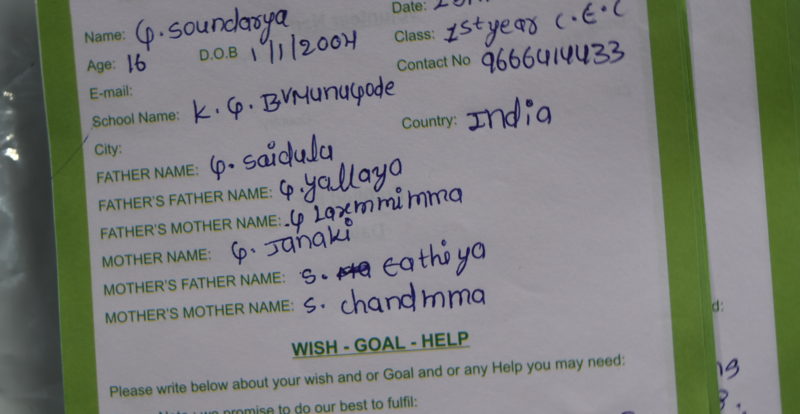 Date:
Name: G. soundarya
Class: 1st year C.E.C
Age: 16 D.O.B 1/1/2004
Contact No 9666414433
E-mail:
School Name: K. G. BVMunugode
Country: India
City:
FATHER NAME: G. saidulu
FATHER'S FATHER NAME: G. yallayo
FATHER'S MOTHER NAME: G laxmmimma
MOTHER NAME: G. Janaki
MOTHER'S FATHER NAME: S. eathiya
MOTHER'S MOTHER NAME: S. chandmma
WISH - GOAL - HELP
Please write below about your wish and or Goal and or any Help you may need:
we promise to do our best to fulfil: